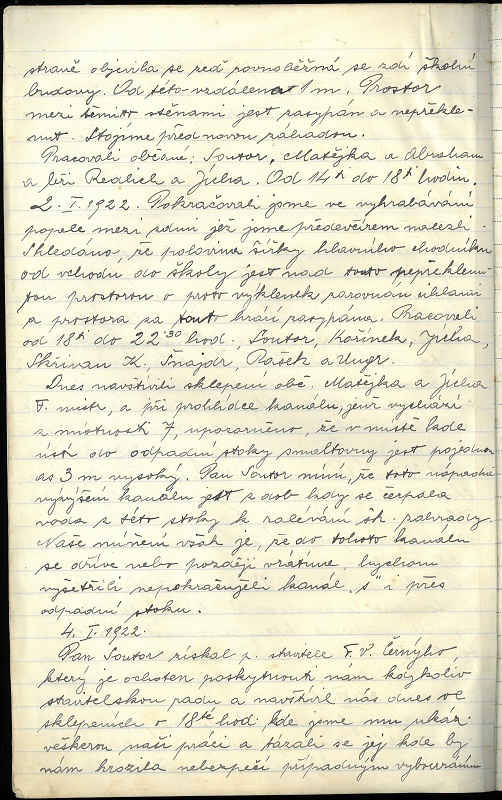 straně objevila se zeď rovnoběžná se zdí školní
budovy. Od této vzdálenost 1 m. Prostor
mezi těmito stěnami jest zasypán a nepřekle-
nut. Stojíme před novou záhadou.
Pracovali občané: Soutor, Matějka a Abraham
a bři Redlich a Jícha. Od 14h do 18h hodin.
2. I. 1922. Pokračovali jsme ve vyhrabávání
popele mezi zdmi jež jsme předevčírem nalezli.
Shledáno, že polovina šířky hlavního chodníku
od vchodu do školy jest nad touto nepřeklenu-
tou prostorou o proto výklenek zarovnán cihlami
a prostora za touto hrází zasypána. Pracovali
od 18h do 22 30 hod. Soutor, Kořínek, Jícha,
Skřivan K., Šnajdr, Rašek a Ungr.
Dnes navštívili sklepení obč. Matějka a Jícha
F. mistr, a při prohlídce kanálu, jenž vychází
z místnosti 7, upozorněno, že v místě kde
ústí do odpadní stoky smaltovny jest pojednou
as 3 m vysoký. Pan Soutor míní, že toto nápadné
vyvýšení kanálu jest z dob kdy se čerpala
voda z této stoky k zalévání šk. zahrady.
Naše mínění však je, že do tohoto kanálu
se dříve nebo později vrátíme, bychom
vyšetřili nepokračuje-li kanál „s" i přes
odpadní stoku.
4. I. 1922.
Pan Soutor získal p. stavitele F. V. Černýho
který je ochoten poskytnouti nám kdykoliv
stavitelskou radu a navštívil nás dnes ve
sklepeních o 18té hod. kde jsme mu ukáz.
věškerou naši práci a tázali se jej kde by
nám hrozila nebezpečí případným vybouráním